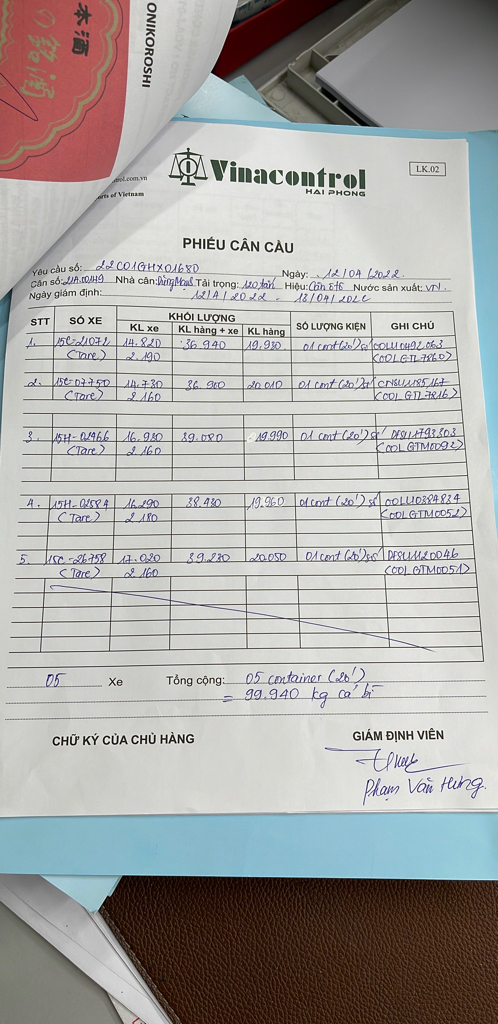 ONIKOROSHI
本酒
Vinacontrol
HAI PHONG
LK.02
rol.com.vn
rts of Vietnam
PHIẾU CÂN CẦU
Yêu cầu số: 22C01GHX01680 Ngày: 12/04/2022
Cân số: Nhà cân: Tải trọng: 120 tấn Hiệu: Nước sản xuất: VN
Ngày giám định: 12/4/2022 - 13/04/2022
STT SỐ XE KHỐI LƯỢNG SỐ LƯỢNG KIỆN GHI CHÚ
KL xe KL hàng + xe KL hàng
1. 15C-21072 14.820 36.940 19.930 01 cont (20') số OOLU0492063
(Tare) 2.190 (OOLGTL7860)
2. 15C-07750 14.730 36.900 20.010 01 cont (20') số
(Tare) 2.160 (OOLGTL7816)
3. 15H-02466 16.930 39.080 19.990 01 cont (20') số DFSU1793303
(Tare) 2.160 (OOLGTM0092)
4. 15H-02584 16.290 38.430 19.960 01 cont (20') số OOLU0384834
(Tare) 2.180 (OOLGTM0052)
5. 15C-26758 17.020 39.230 20.050 01 cont (20') số DFSU1120046
(Tare) 2.160 (OOLGTM0051)
05 Xe Tổng cộng: 05 container (20')
= 99.940 kg cả bì
CHỮ KÝ CỦA CHỦ HÀNG GIÁM ĐỊNH VIÊN
Phạm Văn Hưng.